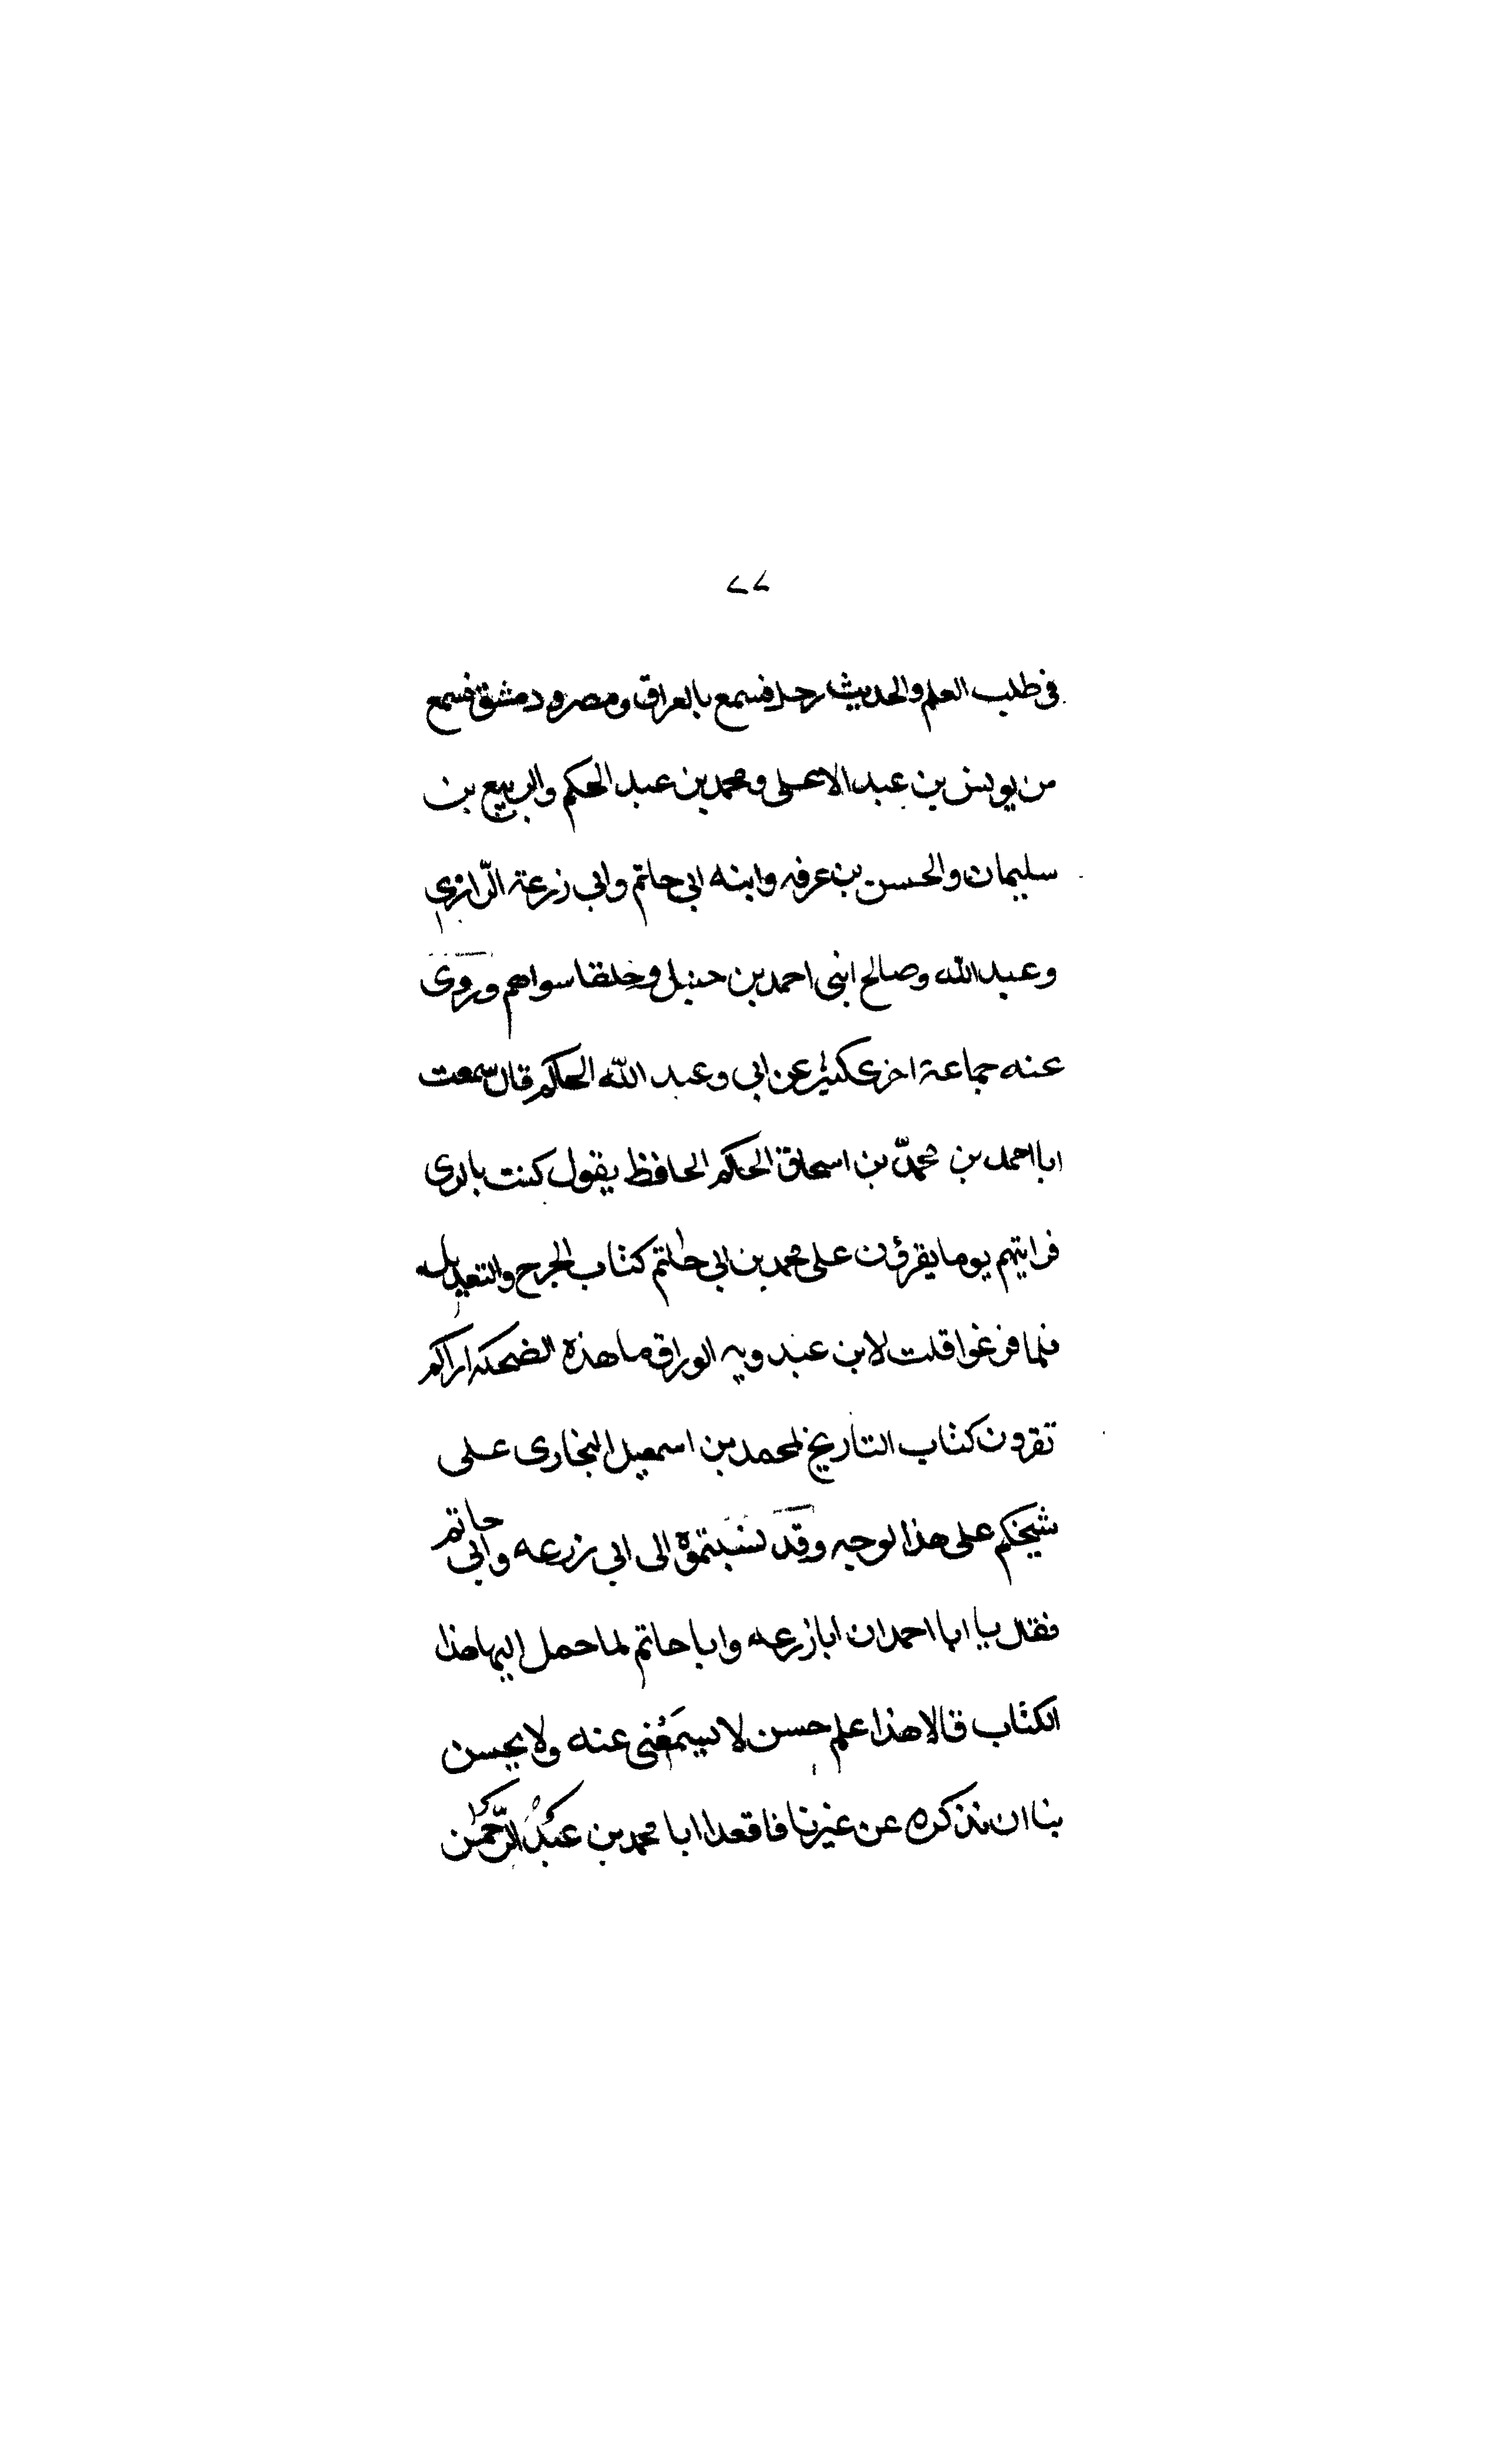 ٧٧
في طلب العلم والحديث رحل فسمع بالعراق ومصر ودمشق فسمع
من يونس بن عبد الاعلى ومحمد بن عبد الحكم والربيع بن
سليمان والحسن بن عرفه وابنه ابي حاتم وابي زرعة الرّازي
وعبد الله وصالح ابني احمد بن حنبل وخلقا سواهم وروى
عنه جماعة اخرى كثير عن ابي وعبد الله الحاكم قال سمعت
ابا احمد بن محمّد بن اسحاق الحاكم الحافظ يقول كنت بالرى
فرايتهم يوما يقرؤن على محمد بن ابي حاتم كتاب الجرح والتعديل
فلما فرغوا قلت لابن عبدويه الوراق ما هذه الضحكه اراكم
تقرون كتاب التاريخ لمحمد بن اسمعيل البخارى على
شيخكم على هذا لوجه وقد نسبتموه الى ابي زرعه وابي حاتم
فقال يا ابا احمد ان ابا زرعه وابا حاتم لما حمل اليهما هذا
الكتاب قالا هذا علم حسن لا يستغنى عنه ولا يحسن
بنا ان نذكره عن غيرنا فاقعدا ابا محمد بن عبد الرّحمٰن